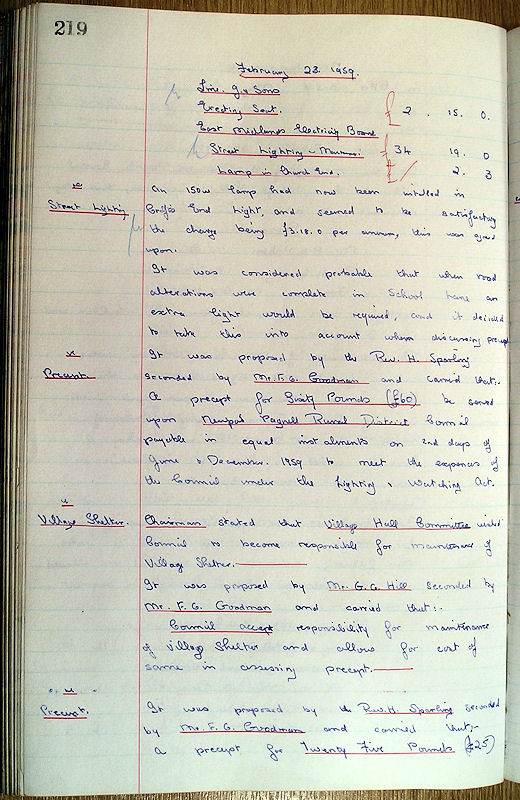 219
February 23. 1959.
Line. G. & Sons
Erecting Seat. £2. 15. 0.
East Midlands Electricity Board
Street Lighting - £34 19. 0
Lamp in Church End. £1 2. 3
Street Lighting
An 150w lamp had now been installed in
End Light, and seemed to be satisfactory
the charge being £3.18.0 per annum, this was agreed
upon.
It was considered probable that when road
alterations were complete in School Lane an
extra light would be required, and it decided
to take this into account when discussing precept
Precept.
It was proposed by the Rev. H. Sparling
seconded by Mr. F. G. Goodman and carried that:-
A precept for Sixty Pounds (£60) be served
upon Newport Pagnell Rural District Council
payable in equal instalments on 2nd days of
June & December. 1959 to meet the expenses of
the Council under the Lighting & Watching Act.
Village Shelter.
Chairman stated that Village Hall Committee wished
Council to become responsible for maintenance of
Village Shelter.
It was proposed by Mr. G. G. Hill seconded by
Mr. F. G. Goodman and carried that:-
Council accept responsibility for maintenance
of Village Shelter and allows for cost of
same in assessing precept.
Precept.
It was proposed by the Rev. H. Sparling seconded
by Mr. F. G. Goodman and carried that;-
A precept for Twenty Five Pounds (£25)